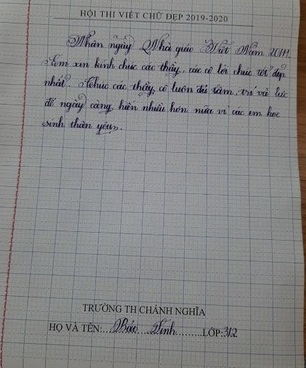 HỘI THI VIẾT CHỮ ĐẸP 2019-2020
Nhân ngày Nhà giáo Việt Nam 20/11
Em xin kính chúc các thầy, các cô lời chúc tốt đẹp
nhất. Chúc các thầy, cô luôn đủ tâm, trí và lực
để ngày càng hiến nhiều hơn nữa vì các em học
sinh thân yêu.
TRƯỜNG TH CHÁNH NGHĨA
HỌ VÀ TÊN:....Bảo....Vinh........LỚP:3/2